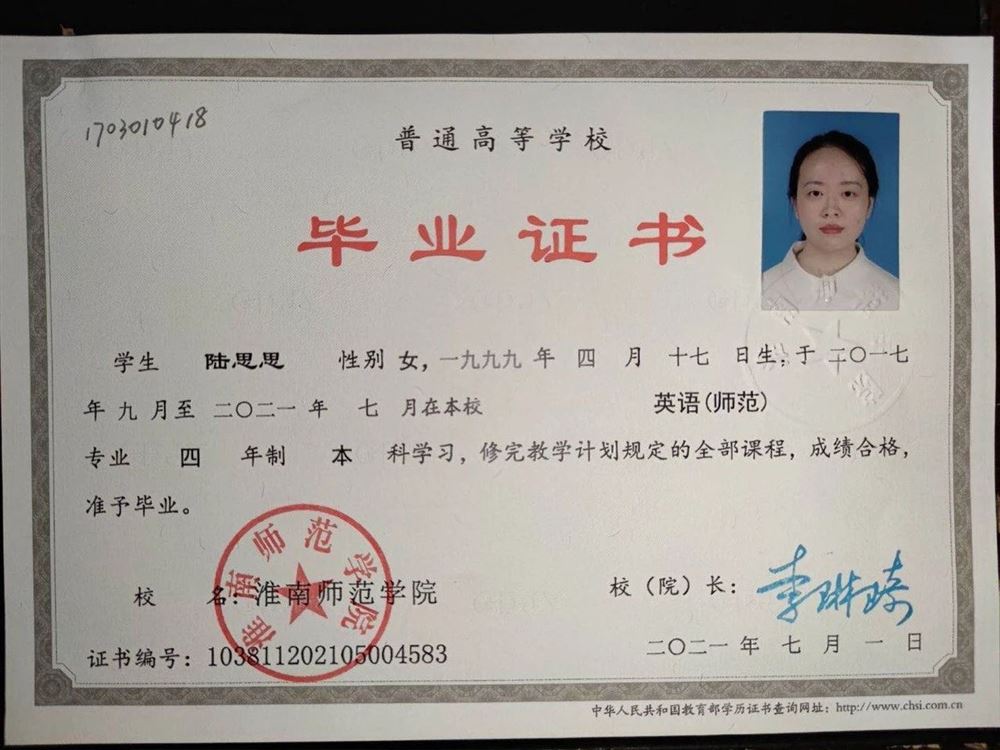 1703010418
普通高等学校
毕业证书
学生 陆思思 性别 女，一九九九 年 四 月 十七 日生，于 二〇一七
年 九 月至 二〇二一 年 七 月在本校 英语(师范)
专业 四 年制 本 科学习，修完教学计划规定的全部课程，成绩合格，
准予毕业。
淮南师范学院
校 名：淮南师范学院 校（院）长：李琳琦
证书编号：103811202105004583 二〇二一 年 七 月 一 日
中华人民共和国教育部学历证书查询网址：http://www.chsi.com.cn